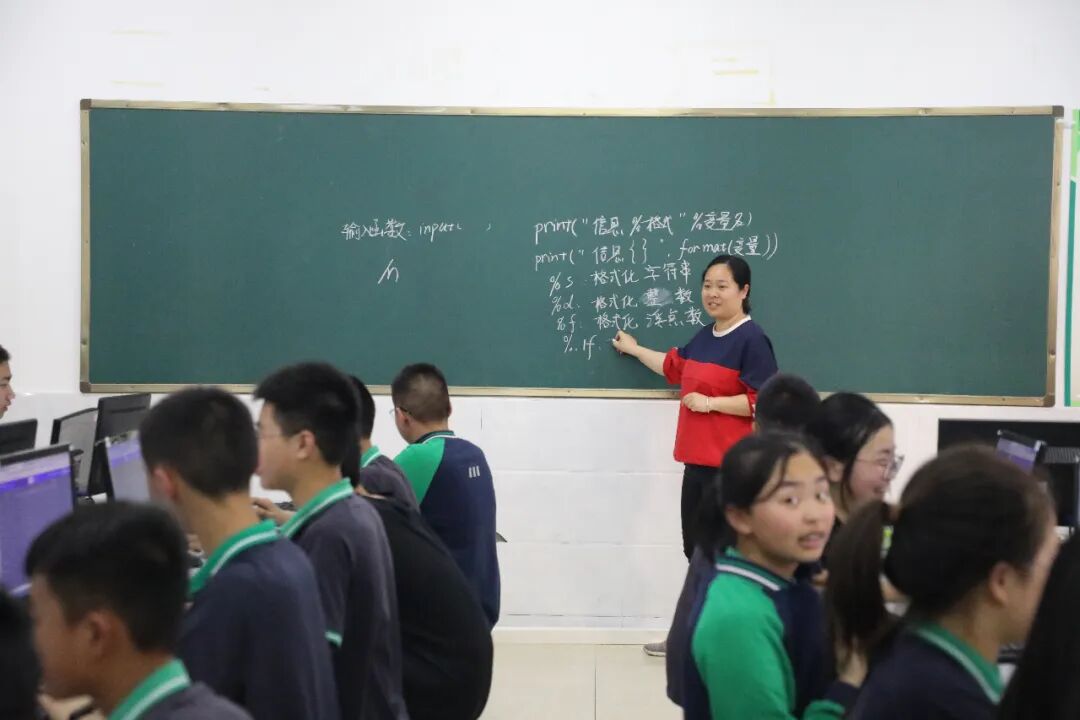 输入函数: input( )
print("信息%格式"%变量名)
print("信息{}".format(变量))
%s:格式化字符串
%d:格式化整数
%f:格式化浮点数
%.1f: